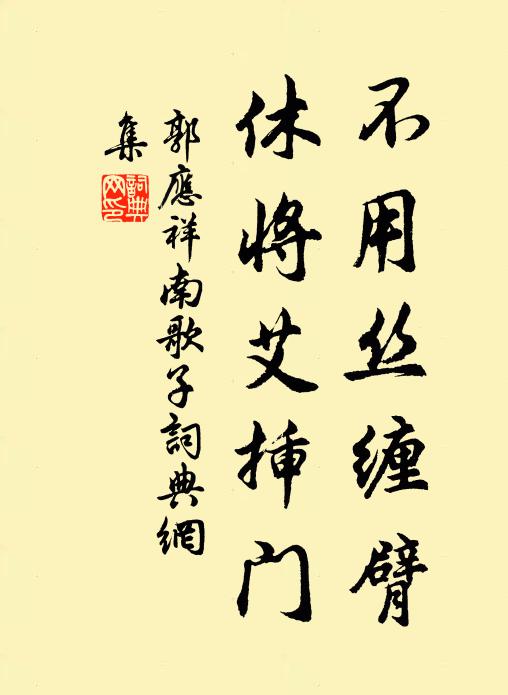 不用丝缠臂
休将艾挿门
郭應祥南歌子詞典網
集
詞典
网印